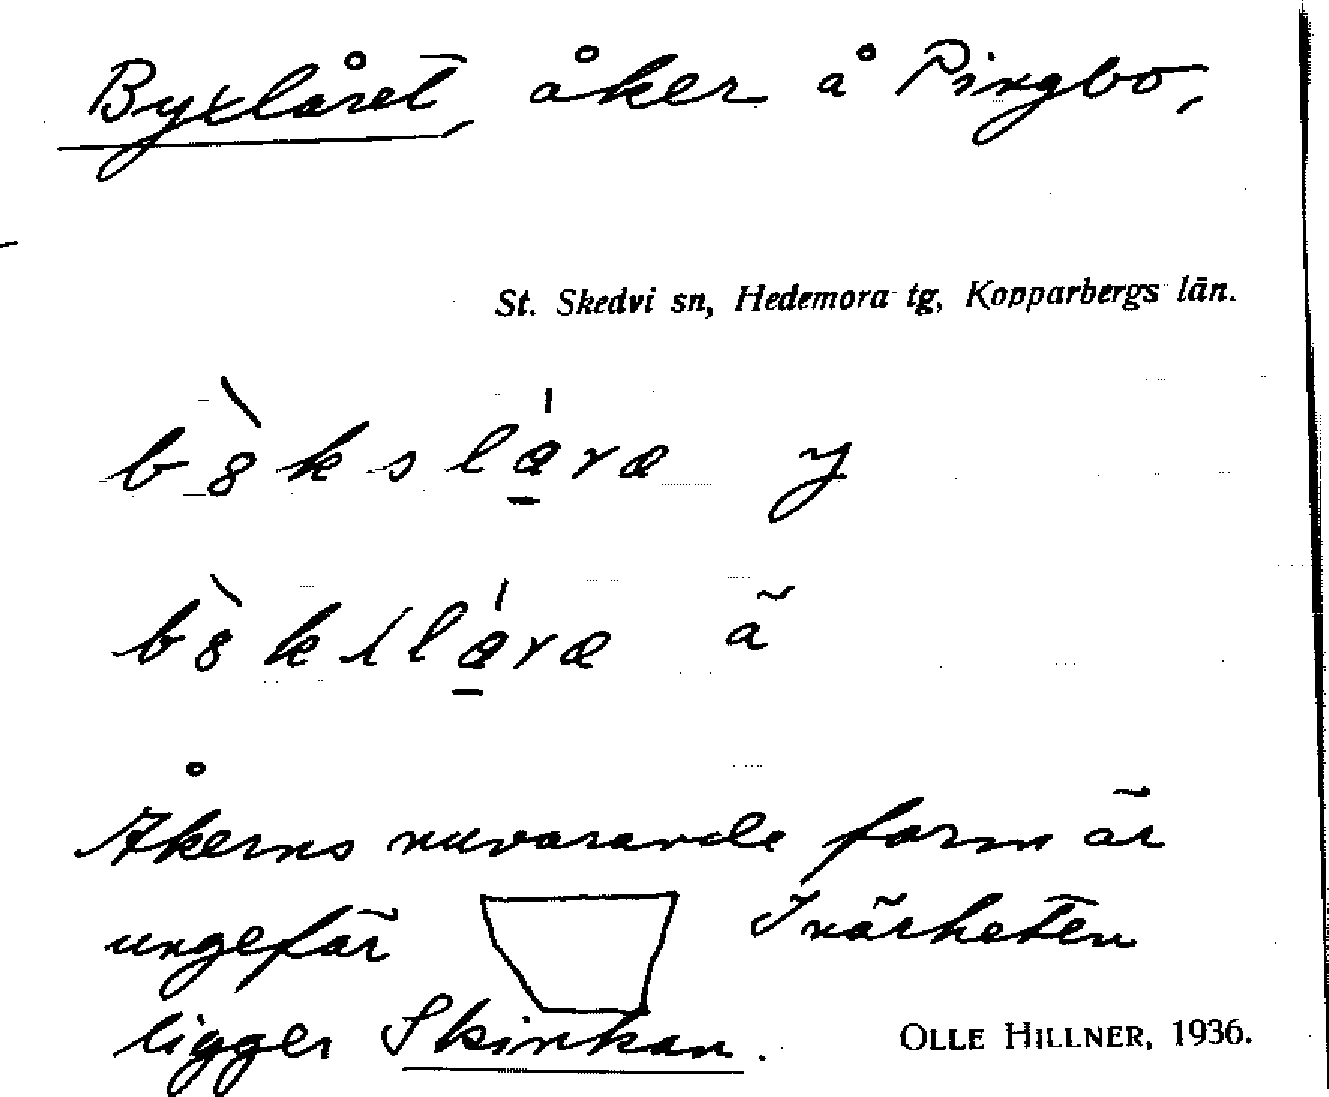 Byxlåret, åker å Pingbo,
St. Skedvi sn, Hedemora tg, Kopparbergs län.
Åkerns nuvarande form är
ungefär I närheten
ligger Skinkan.
OLLE HILLNER, 1936.